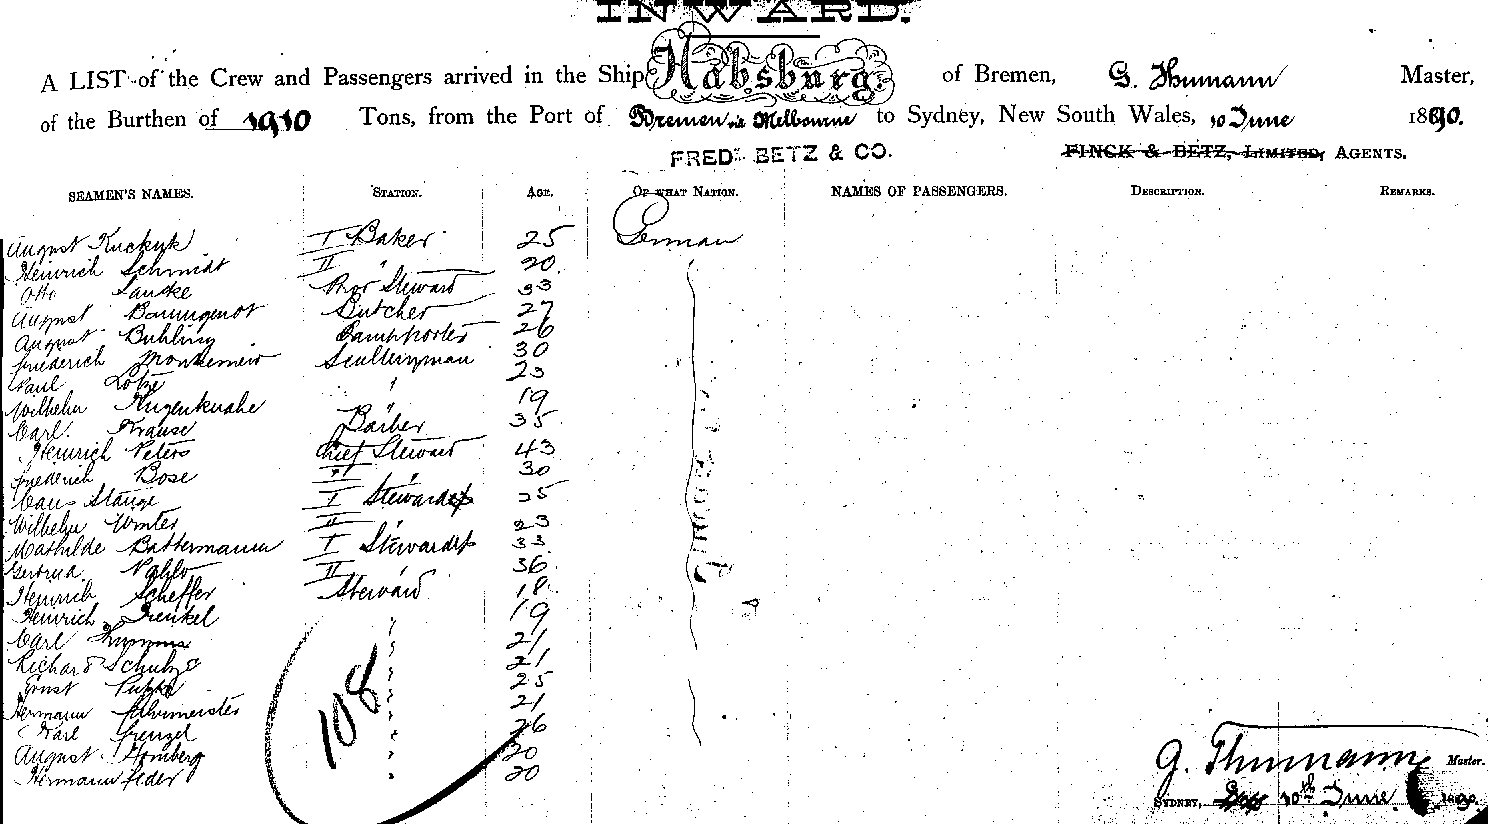 INWARD.
A LIST of the Crew and Passengers arrived in the Ship Habsburg. of Bremen, G. Thumann Master,
of the Burthen of 1910 Tons, from the Port of Bremen via Melbourne to Sydney, New South Wales, 10 June 1890.
FREDK BETZ & CO. FINCK & BETZ, LIMITED, AGENTS.
SEAMEN'S NAMES. STATION. AGE. OF WHAT NATION. NAMES OF PASSENGERS. DESCRIPTION. REMARKS.
August Kuckuk I Baker 25 German
Heinrich Schmidt II " 20
Otto Steward 33
August Butcher 27
August Buhling 26
Friederich Sculleryman 30
Paul Lotze " 23
Wilhelm 19
Carl Krause Barber 35
Heinrich Peters Chief Steward 43
Friederich Bose II " 30
Stange I 25
Wilhelm Winter II " 23
Mathilde Battermann I Stewardess 33
Pahlo II " 36
Heinrich Scheffer Steward 18
Heinrich Trenkel " 19
Carl " 21
Richard Schulze " 21
Ernst " 25
Hermann " 21
Karl Frenzel " 26
August Homberg " 20
Hermann Feder " 20
108
G. Thumann Master.
SYDNEY, 10th June 1890.